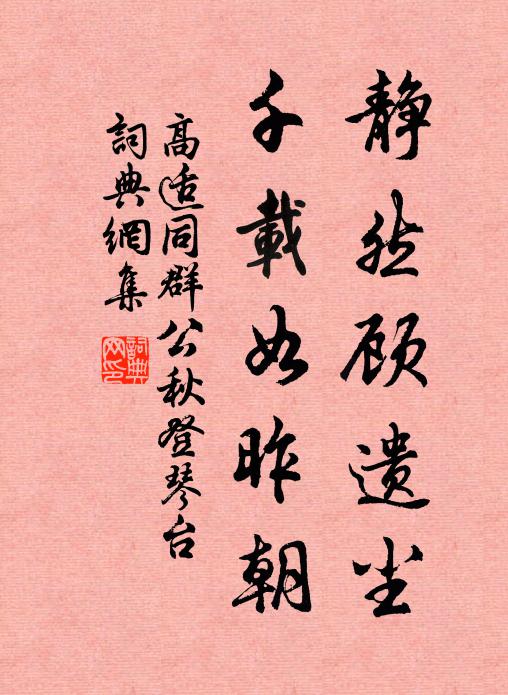 静然顾遗尘
千載如昨朝
高适同群公秋登琴台
詞典網集
詞典网印